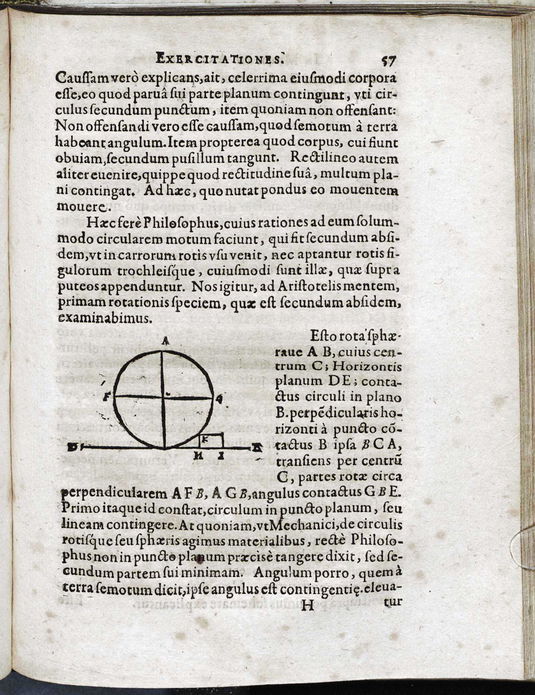 EXERCITATIONES. 57
Caussam verò explicans, ait, celerrima eiusmodi corpora
esse, eo quod paruâ sui parte planum contingunt, vti cir-
culus secundum punctum, item quoniam non offensant:
Non offensandi vero esse caussam, quod semotum à terra
habeant angulum. Item propterea quod corpus, cui fiunt
obuiam, secundum pusillum tangunt. Rectilineo autem
aliter euenire, quippe quod rectitudine suâ, multum pla-
ni contingat. Ad hæc, quo nutat pondus eo mouentem
mouere.
Hæc ferè Philosophus, cuius rationes ad eum solum-
modo circularem motum faciunt, qui fit secundum absi-
dem, vt in carrorum rotis vsu venit, nec aptantur rotis fi-
gulorum trochleisque, cuiusmodi sunt illæ, quæ supra
puteos appenduntur. Nos igitur, ad Aristotelis mentem,
primam rotationis speciem, quæ est secundum absidem,
examinabimus.
Esto rota sphæ-
raue A B, cuius cen-
trum C; Horizontis
planum DE; conta-
ctus circuli in plano
B. perpẽdicularis ho-
rizonti à puncto cõ-
tactus B ipsa B C A,
transiens per centrũ
C, partes rotæ circa
A
F
G
D
K
E
H I
perpendicularem A F B, A G B, angulus contactus G B E.
Primo itaque id constat, circulum in puncto planum, seu
lineam contingere. At quoniam, vt Mechanici, de circulis
rotisque seu sphæris agimus materialibus, rectè Philoso-
phus non in puncto planum præcisè tangere dixit, sed se-
cundum partem sui minimam. Angulum porro, quem à
terra semotum dicit, ipse angulus est contingentię. eleua-
H tur